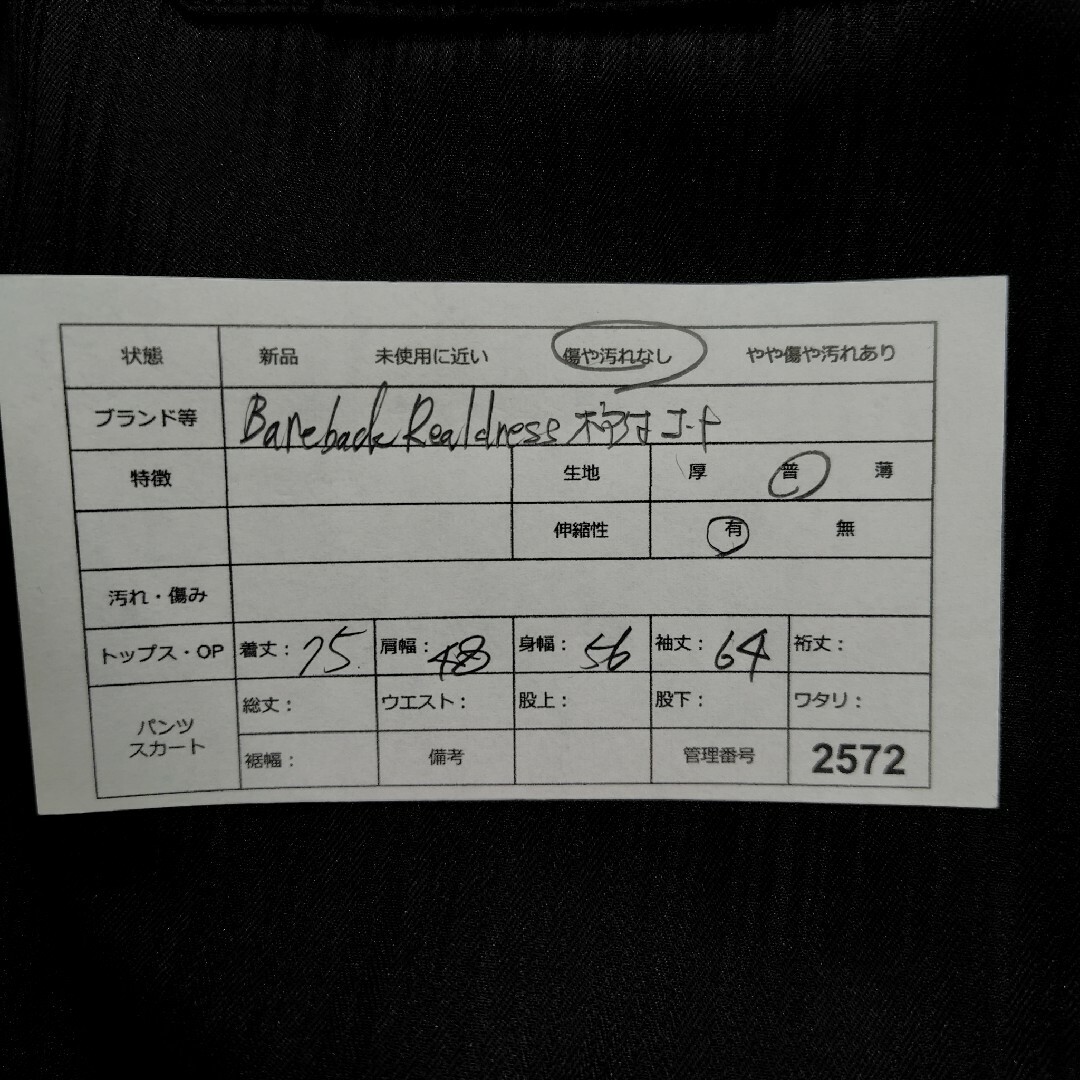 状態 新品 未使用に近い 傷や汚れなし やや傷や汚れあり
ブランド等 Bareback Realdness コート
特徴 生地 厚 普 薄
伸縮性 有 無
汚れ・傷み
トップス・OP 着丈: 75 肩幅: 48 身幅: 56 袖丈: 64 裄丈:
パンツ スカート 総丈: ウエスト: 股上: 股下: ワタリ:
裾幅: 備考 管理番号 2572